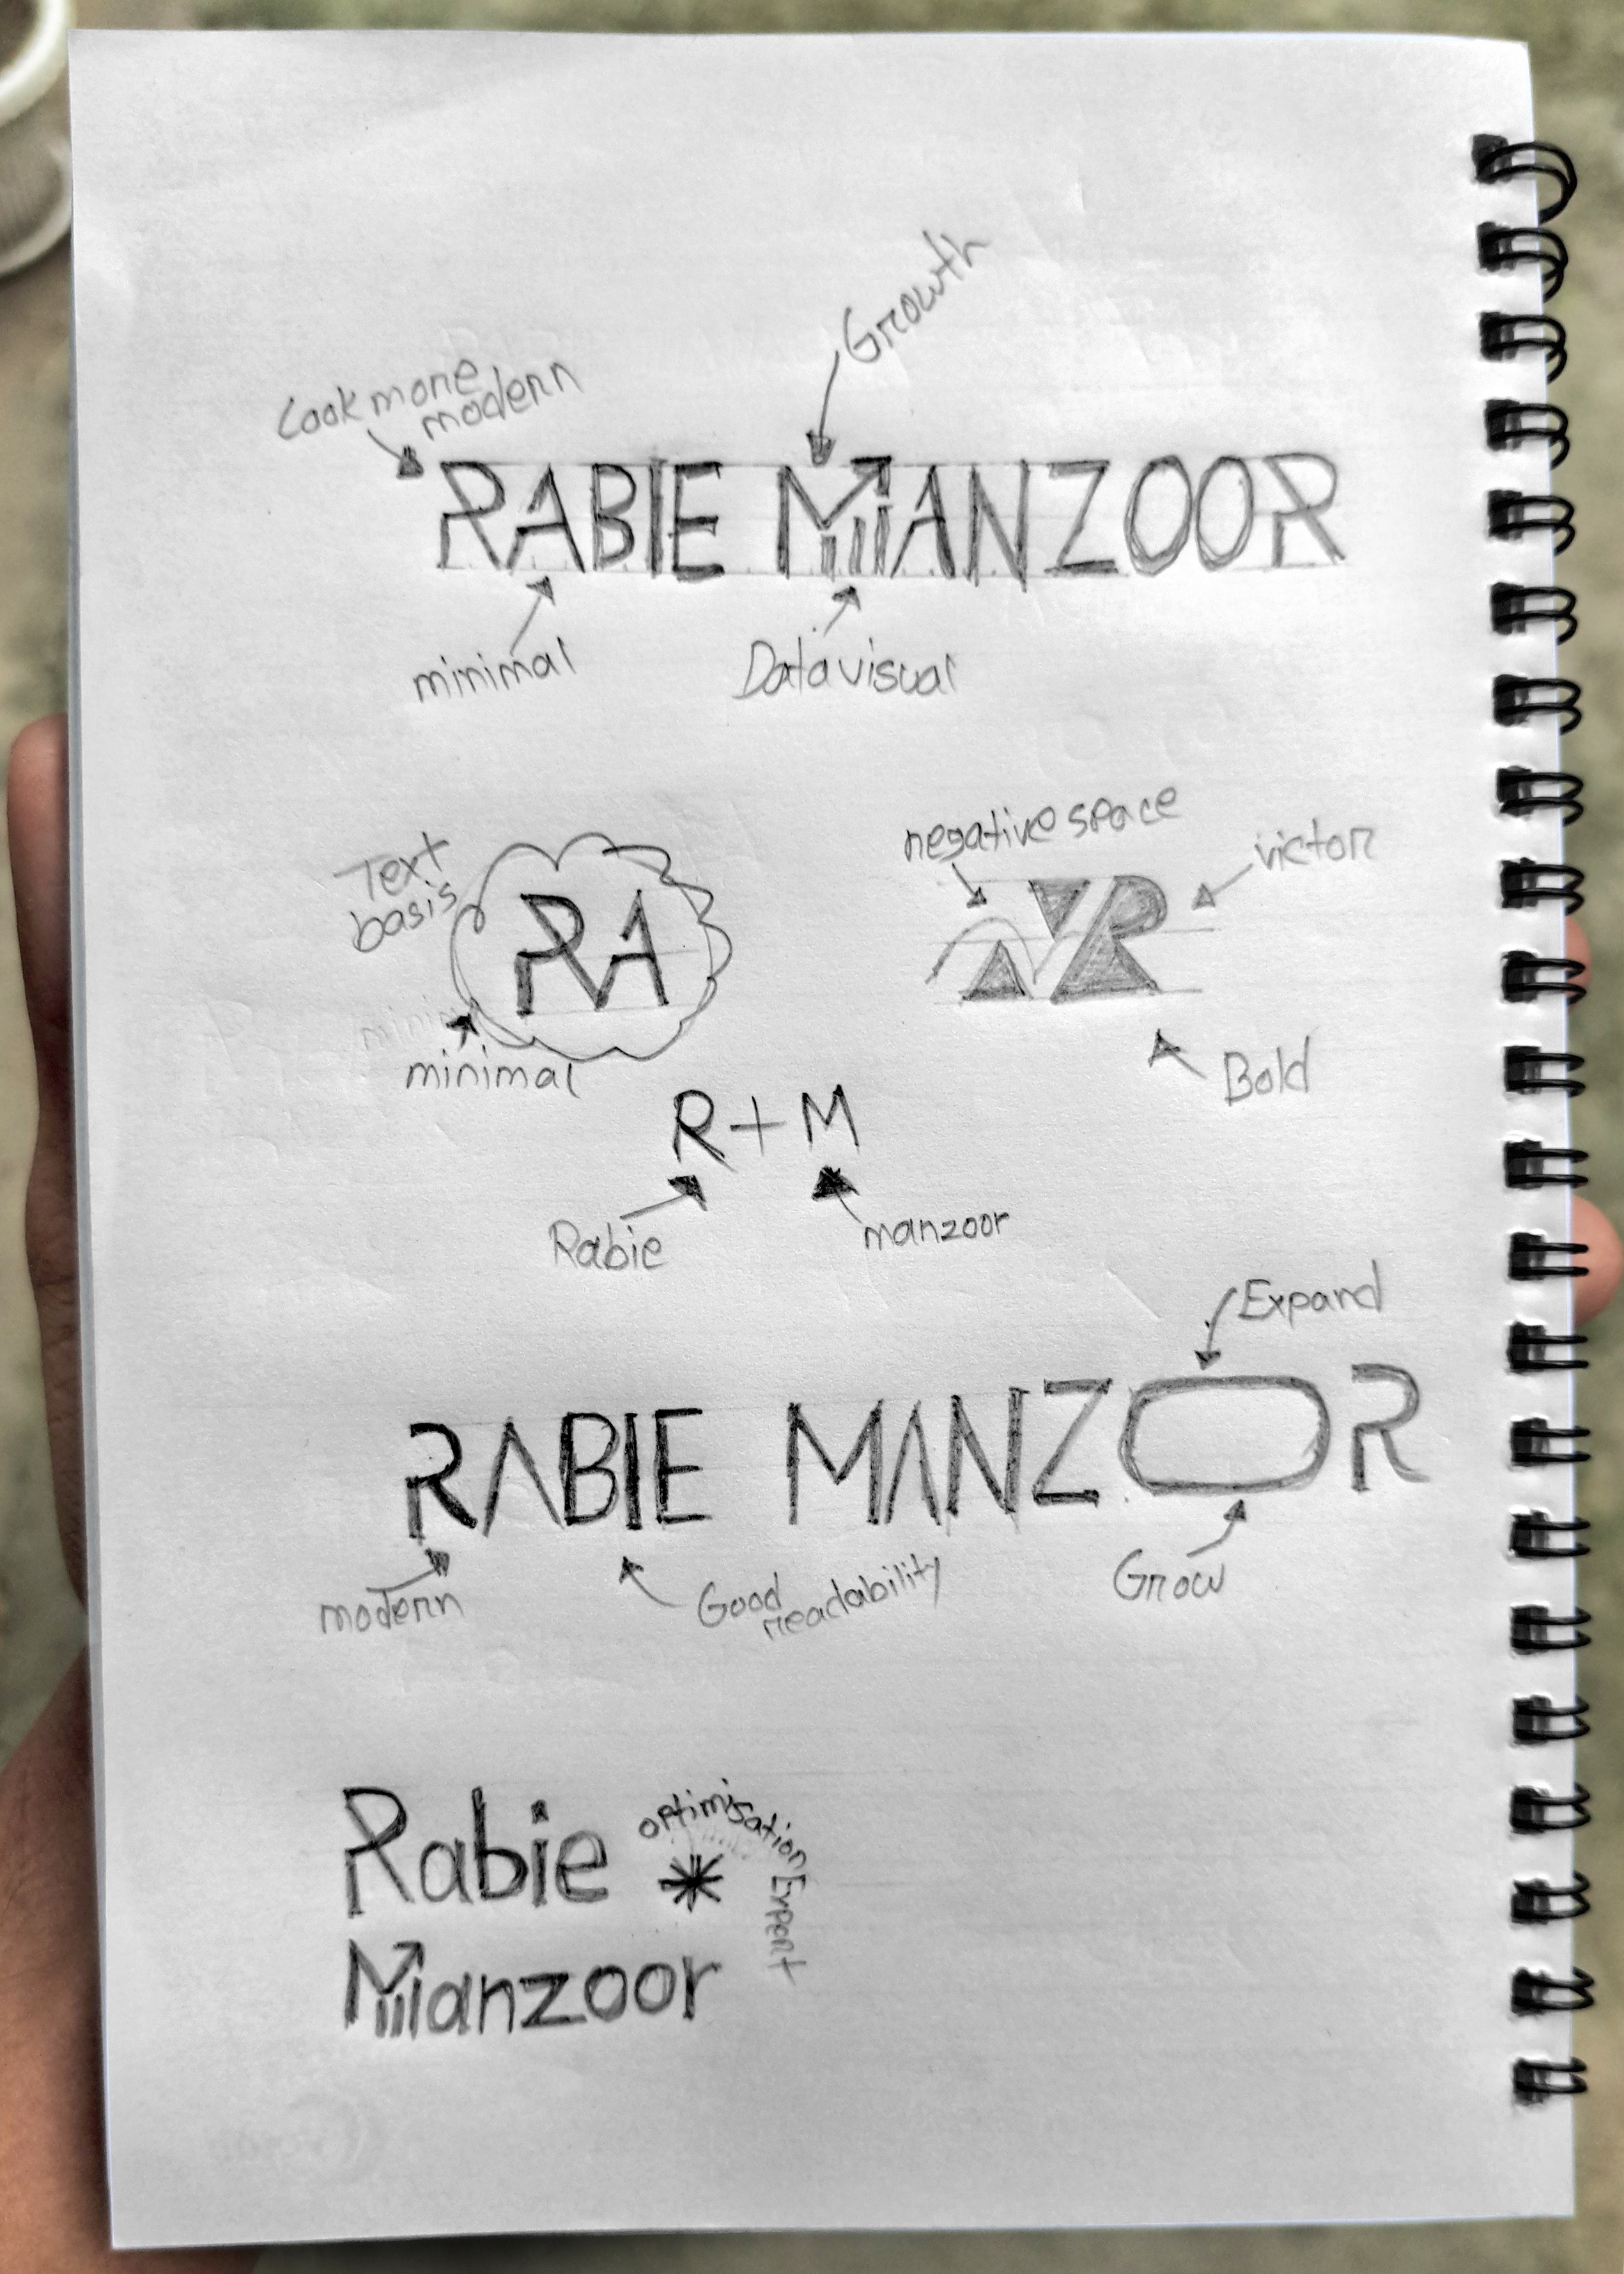 Growth
Look more
modern
RABIE MANZOOR
minimal
Data visual
negative space
Text
basis
victor
RA
R
mini
minimal
Bold
R+M
Rabie
manzoor
Expand
RABIE MANZOR
modern
Good
readability
Grow
Rabie
optimisation Expert
Manzoor